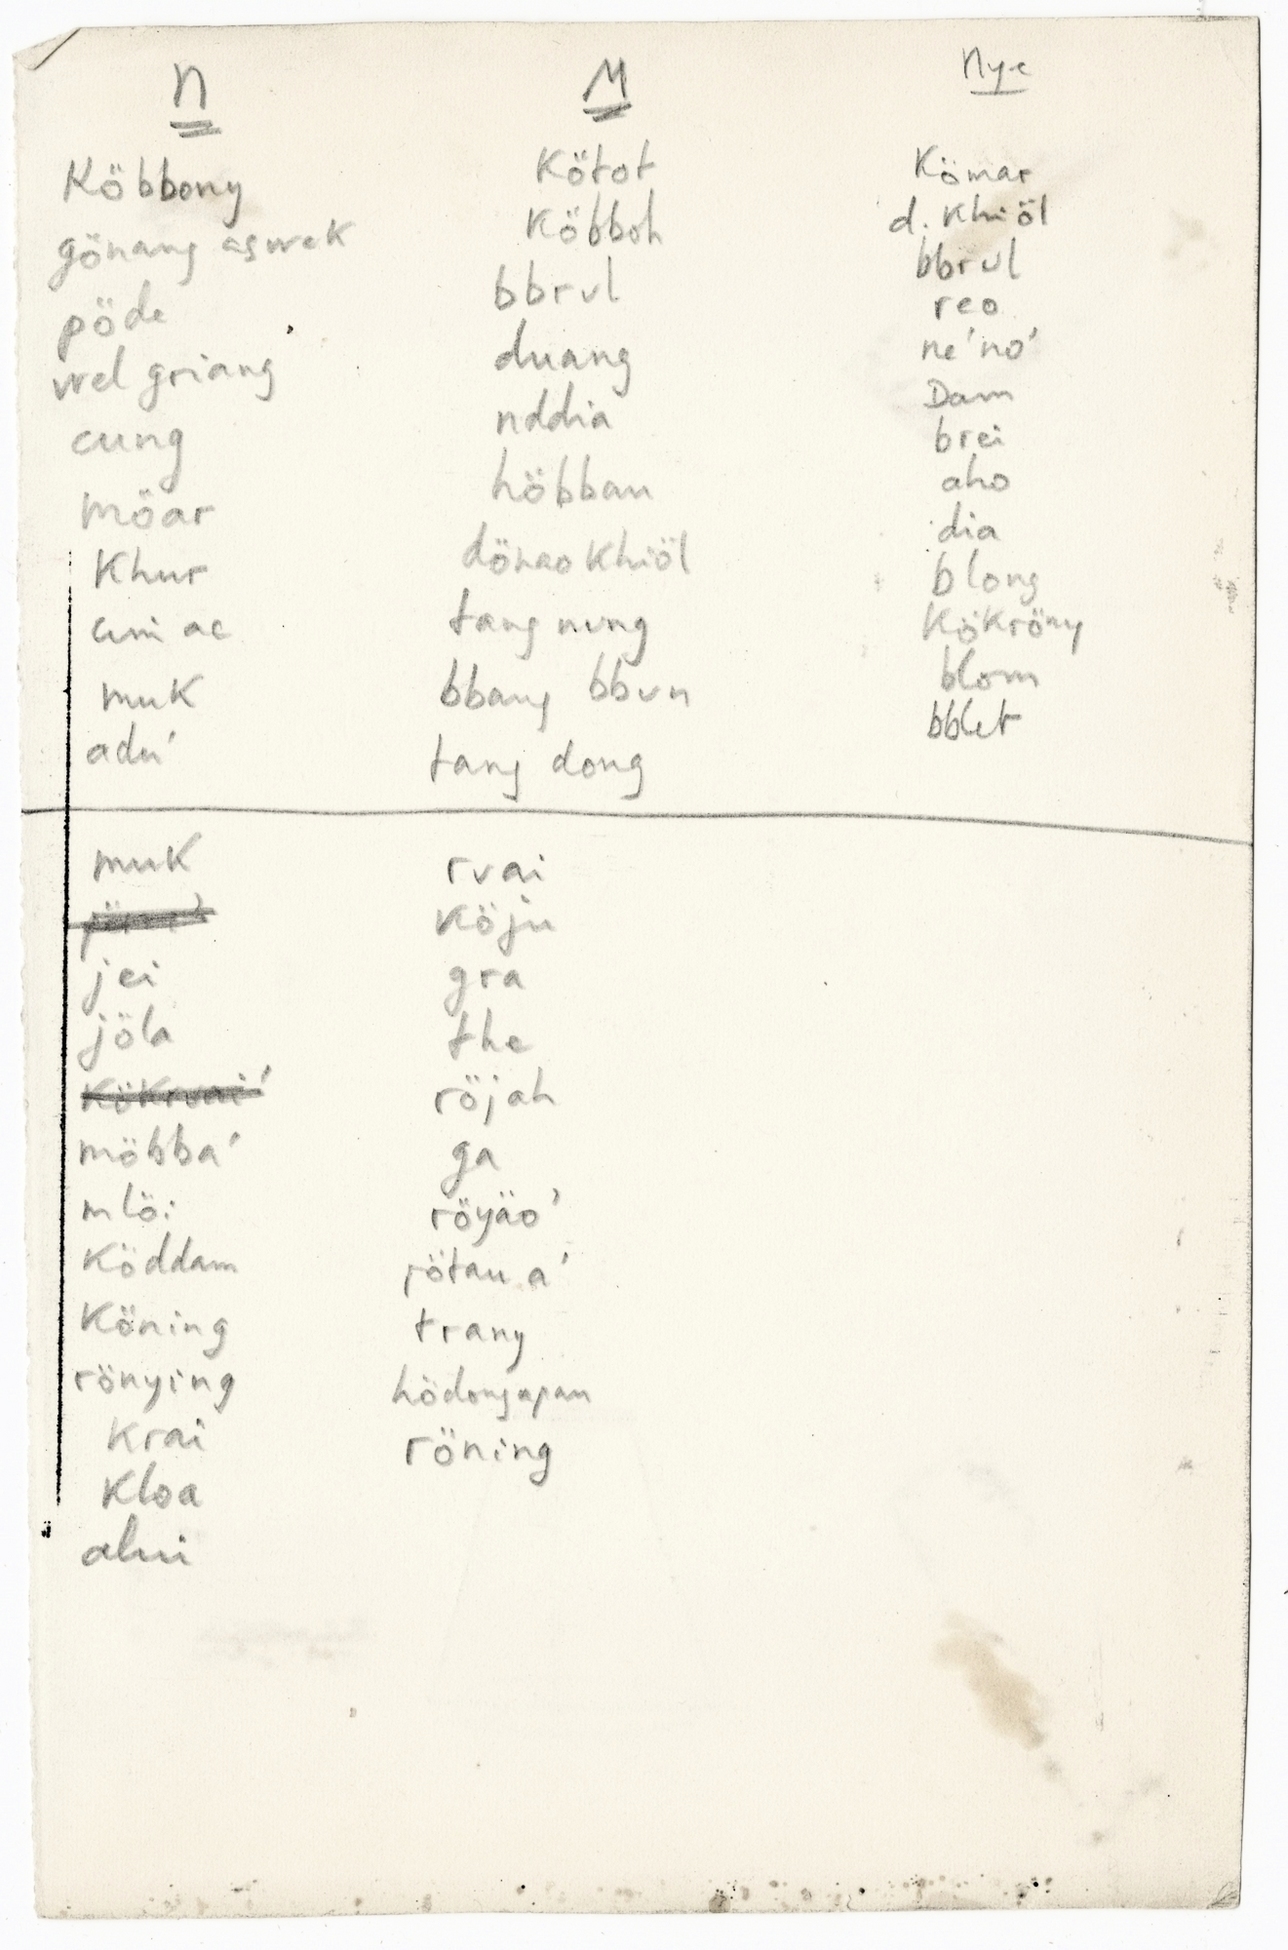 n
Köbbony
gönang asvrek
pöde
vrel griang
cung
möar
Khur
ac
muK
adu'
muK
jei
jöla
möbba'
mlöi
Köddam
Köning
rönying
Krai
Kloa
M
Kötot
Köbboh
bbrvl
duang
nddia
höbban
dönao Khiöl
tang nvng
bbang bbvn
tang dong
rvai
Köju
gra
the
röjah
ga
röyäo'
trany
röning
Nye
Kömar
d. Khiöl
bbrvl
reo
ne'no'
Dam
brei
aho
dia
blong
Kökröny
blom
bblet